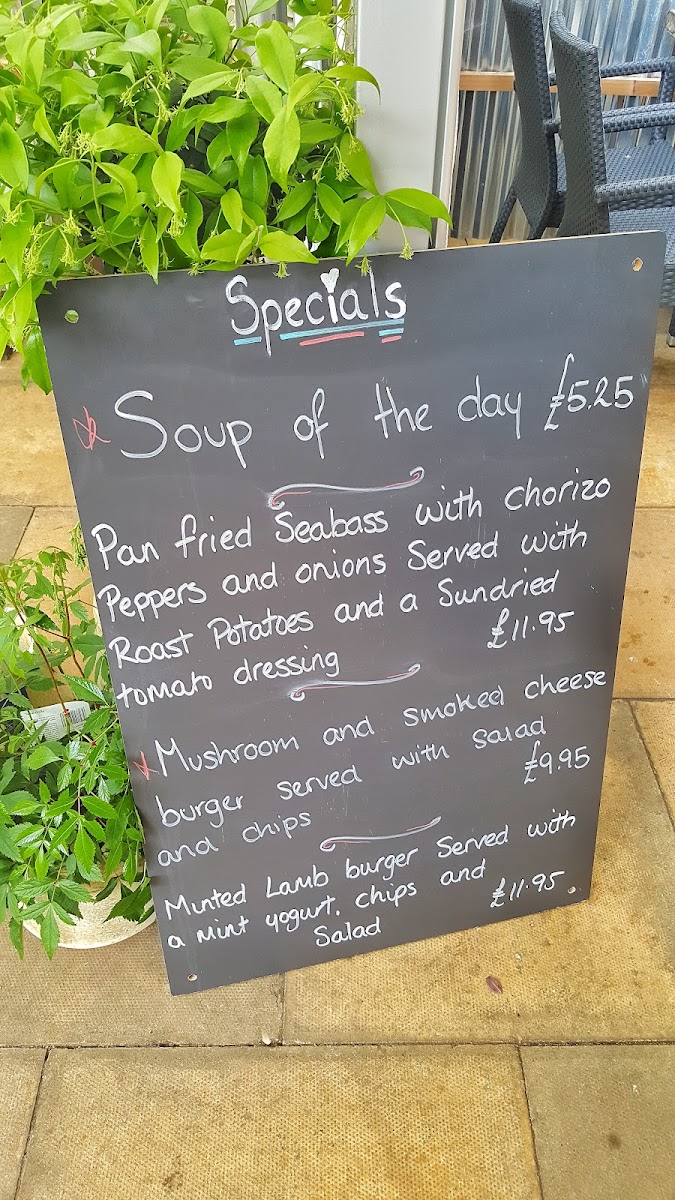 Specials
Soup of the day £5.25
Pan fried Seabass with chorizo
Peppers and onions Served with
Roast Potatoes and a Sundried
tomato dressing £11.95
Mushroom and smoked cheese
burger served with salad
and chips £9.95
Minted Lamb burger Served with
a Mint yogurt, chips and
Salad £11.95